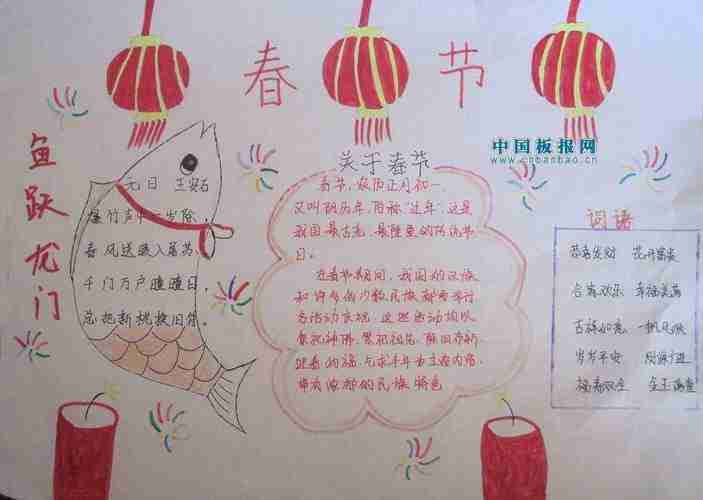 春节
中国板报网
www.cnbanbao.cn
鱼跃龙门
元日 王安石
爆竹声中一岁除,
春风送暖入屠苏。
千门万户曈曈日,
总把新桃换旧符。
关于春节
春节,农历正月初一,
又叫阴历年,俗称“过年”,这是
我国最古老,最隆重的传统节
日。
在春节期间,我国的汉族
和许多少数民族都要举行
各活动庆祝,这些活动均以
祭祀神佛,祭祀祖先,除旧布新
迎春
祈求丰年为主要内容,
带有浓郁的民族特色
词语
恭喜发财 花开富贵
合家欢乐 幸福美满
吉祥如意 一帆风顺
岁岁平安 财源广进
福寿双全 金玉满堂